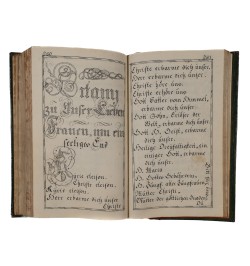 Litany
zu Unser Lieben
Frauen, um ein
seeliges End
Kyrie eleison.
Christe eleison.
Kyrie eleison.
Herr erbarme dich unser.
Christe
Christe erbarme dich unser.
Herr erbarme dich unser.
Christe höre uns.
Christe erhöre uns.
Gott Vatter vom Himmel,
erbarme dich unser.
Gott Sohn, Erlöser der
Welt, erbarme dich unser.
Gott H. Geist, erbarme
dich unser.
Heilige Dreyfaltigkeit, ein
einiger Gott, erbarme
dich unser.
H. Maria
H. Gottes Gebährerin,
H. Jungf. aller Jungfrauen
Mutter Christi,
Mutter der göttlichen Gnaden